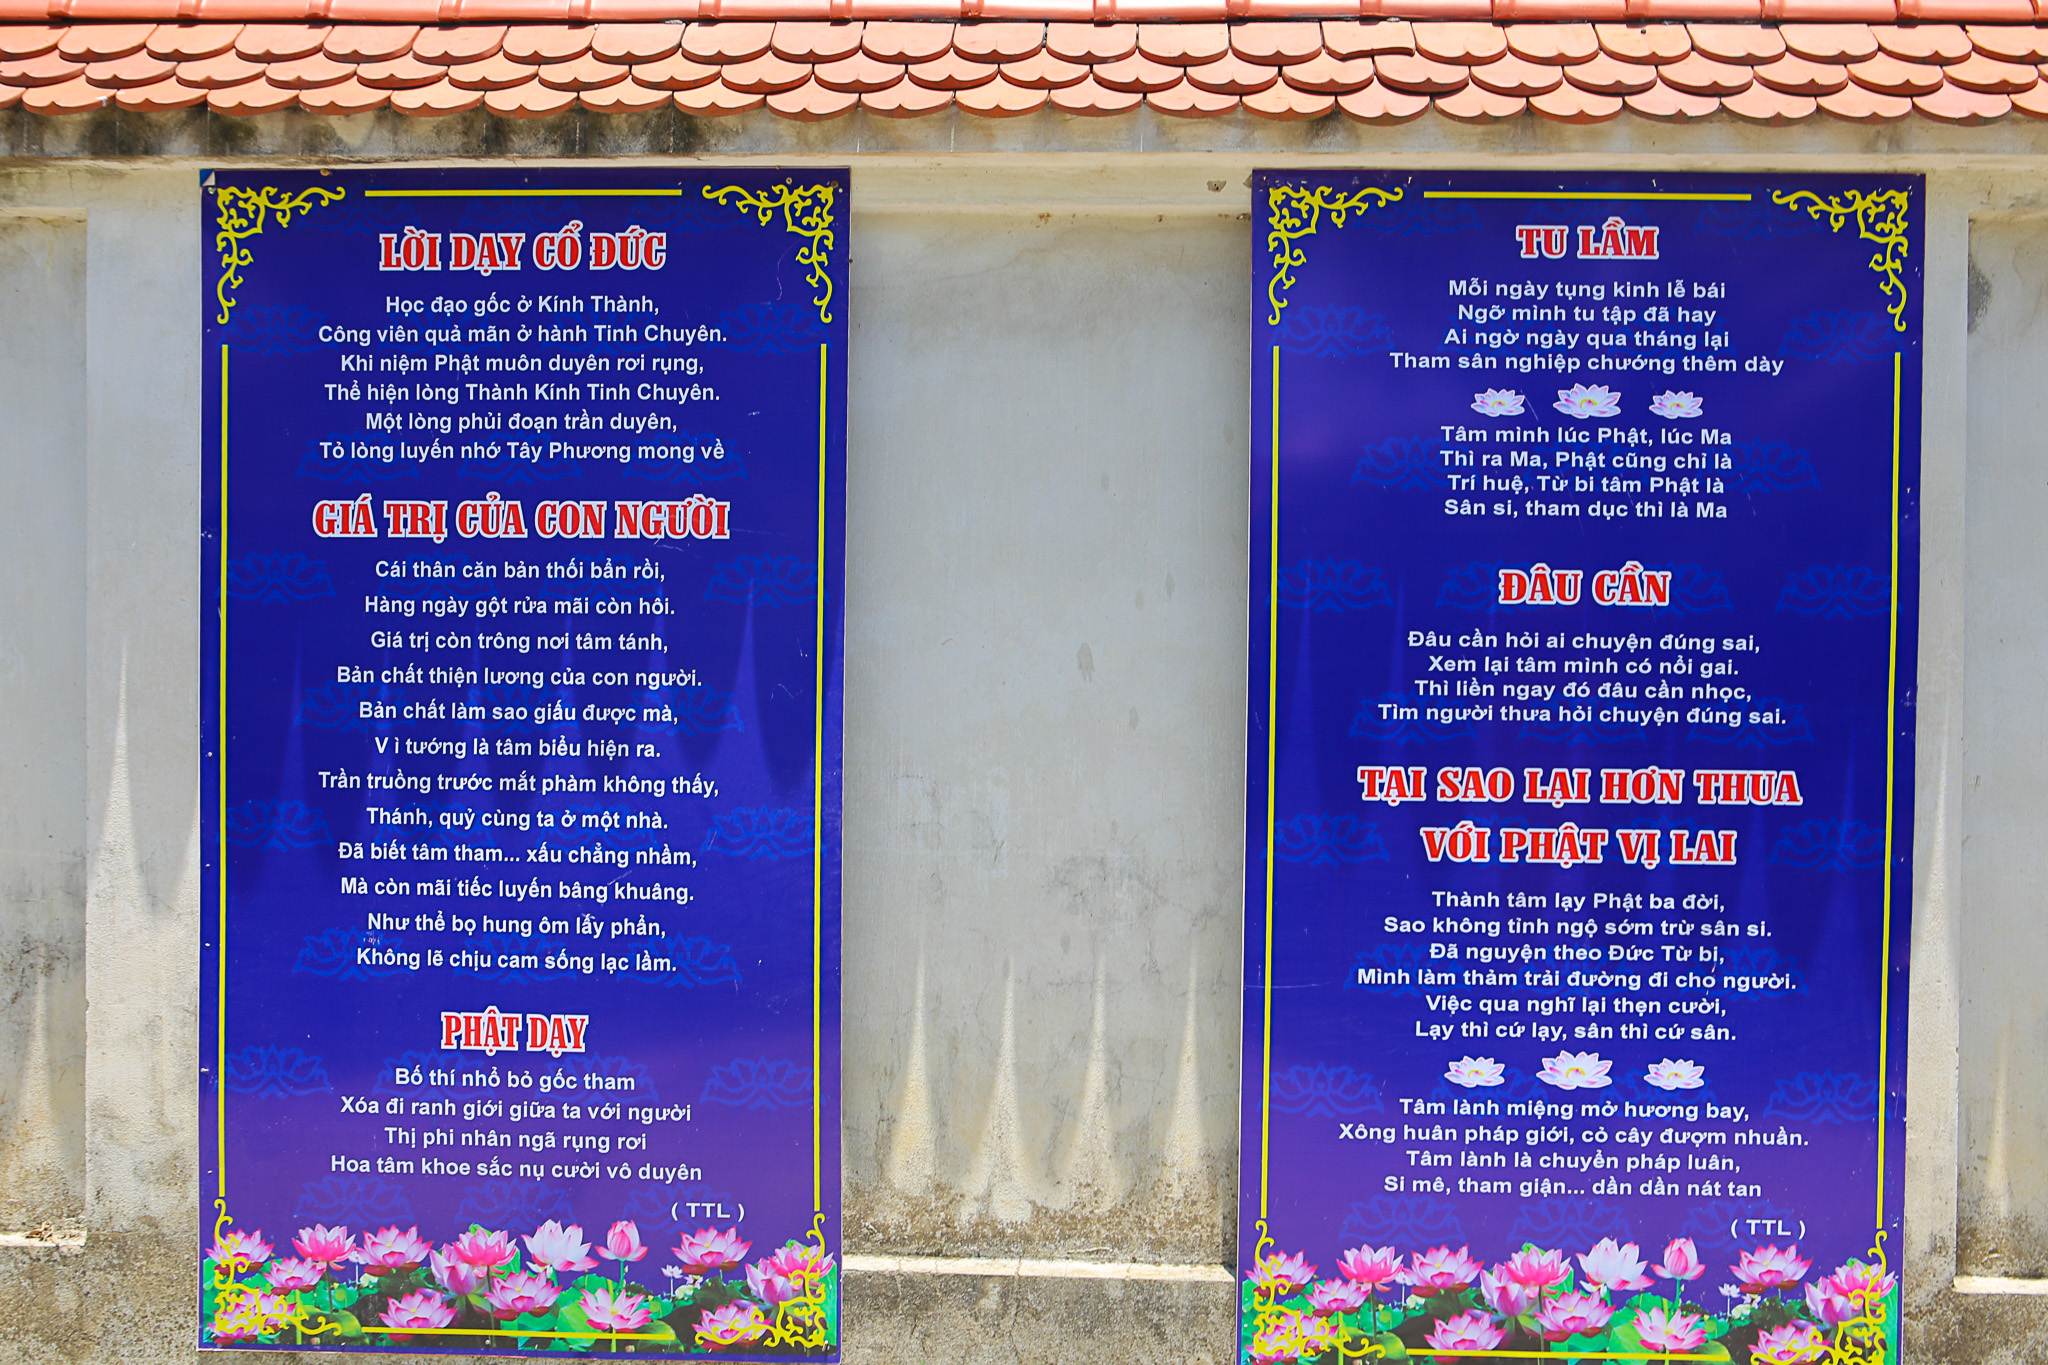 LỜI DẠY CỔ ĐỨC
Học đạo gốc ở Kính Thành,
Công viên quả mãn ở hành Tinh Chuyên.
Khi niệm Phật muôn duyên rơi rụng,
Thể hiện lòng Thành Kính Tinh Chuyên.
Một lòng phủi đoạn trần duyên,
Tỏ lòng luyến nhớ Tây Phương mong về
GIÁ TRỊ CỦA CON NGƯỜI
Cái thân căn bản thối bẩn rồi,
Hàng ngày gột rửa mãi còn hôi.
Giá trị còn trông nơi tâm tánh,
Bản chất thiện lương của con người.
Bản chất làm sao giấu được mà,
V ì tướng là tâm biểu hiện ra.
Trần truồng trước mắt phàm không thấy,
Thánh, quỷ cùng ta ở một nhà.
Đã biết tâm tham... xấu chẳng nhầm,
Mà còn mãi tiếc luyến bâng khuâng.
Như thể bọ hung ôm lấy phẩn,
Không lẽ chịu cam sống lạc lầm.
PHẬT DẠY
Bố thí nhổ bỏ gốc tham
Xóa đi ranh giới giữa ta với người
Thị phi nhân ngã rụng rơi
Hoa tâm khoe sắc nụ cười vô duyên
( TTL )
TU LẦM
Mỗi ngày tụng kinh lễ bái
Ngỡ mình tu tập đã hay
Ai ngờ ngày qua tháng lại
Tham sân nghiệp chướng thêm dày
Tâm mình lúc Phật, lúc Ma
Thì ra Ma, Phật cũng chỉ là
Trí huệ, Từ bi tâm Phật là
Sân si, tham dục thì là Ma
ĐÂU CẦN
Đâu cần hỏi ai chuyện đúng sai,
Xem lại tâm mình có nổi gai.
Thì liền ngay đó đâu cần nhọc,
Tìm người thưa hỏi chuyện đúng sai.
TẠI SAO LẠI HƠN THUA
VỚI PHẬT VỊ LAI
Thành tâm lạy Phật ba đời,
Sao không tỉnh ngộ sớm trừ sân si.
Đã nguyện theo Đức Từ bi,
Mình làm thảm trải đường đi cho người.
Việc qua nghĩ lại thẹn cười,
Lạy thì cứ lạy, sân thì cứ sân.
Tâm lành miệng mở hương bay,
Xông huân pháp giới, cỏ cây đượm nhuần.
Tâm lành là chuyển pháp luân,
Si mê, tham giận... dần dần nát tan
( TTL )